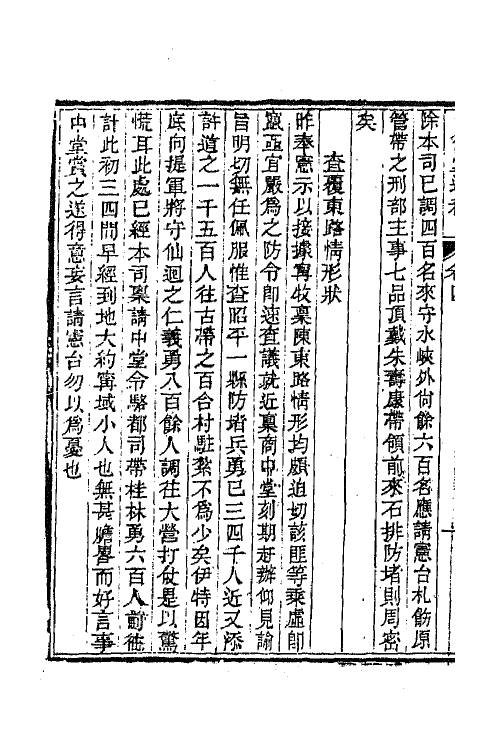 除本司已調四百名來守水峽外尙餘六百名應請憲台札飭原
管帶之刑部主事七品頂戴朱壽康帶領前來石排防堵則周密
矣
查覆東路情形狀
昨奉憲示以接據甯牧稟陳東路情形均頗迫切該匪等乘虛卽
竄亟宜嚴爲之防令卽速查議就近稟商中堂刻期赶辦仰見諭
旨明切無任佩服惟查昭平一縣防堵兵勇已三四千人近又添
許道之一千五百人往古帶之百合村駐紮不爲少矣伊特因年
底向提軍將守仙迴之仁義勇八百餘人調往大營打仗是以驚
慌耳此處已經本司稟請中堂令駱都司帶桂林勇六百人前往
計此初三四間早經到地大約甯域小人也無甚膽畧而好言事
中堂賞之遂得意妄言請憲台勿以爲憂也